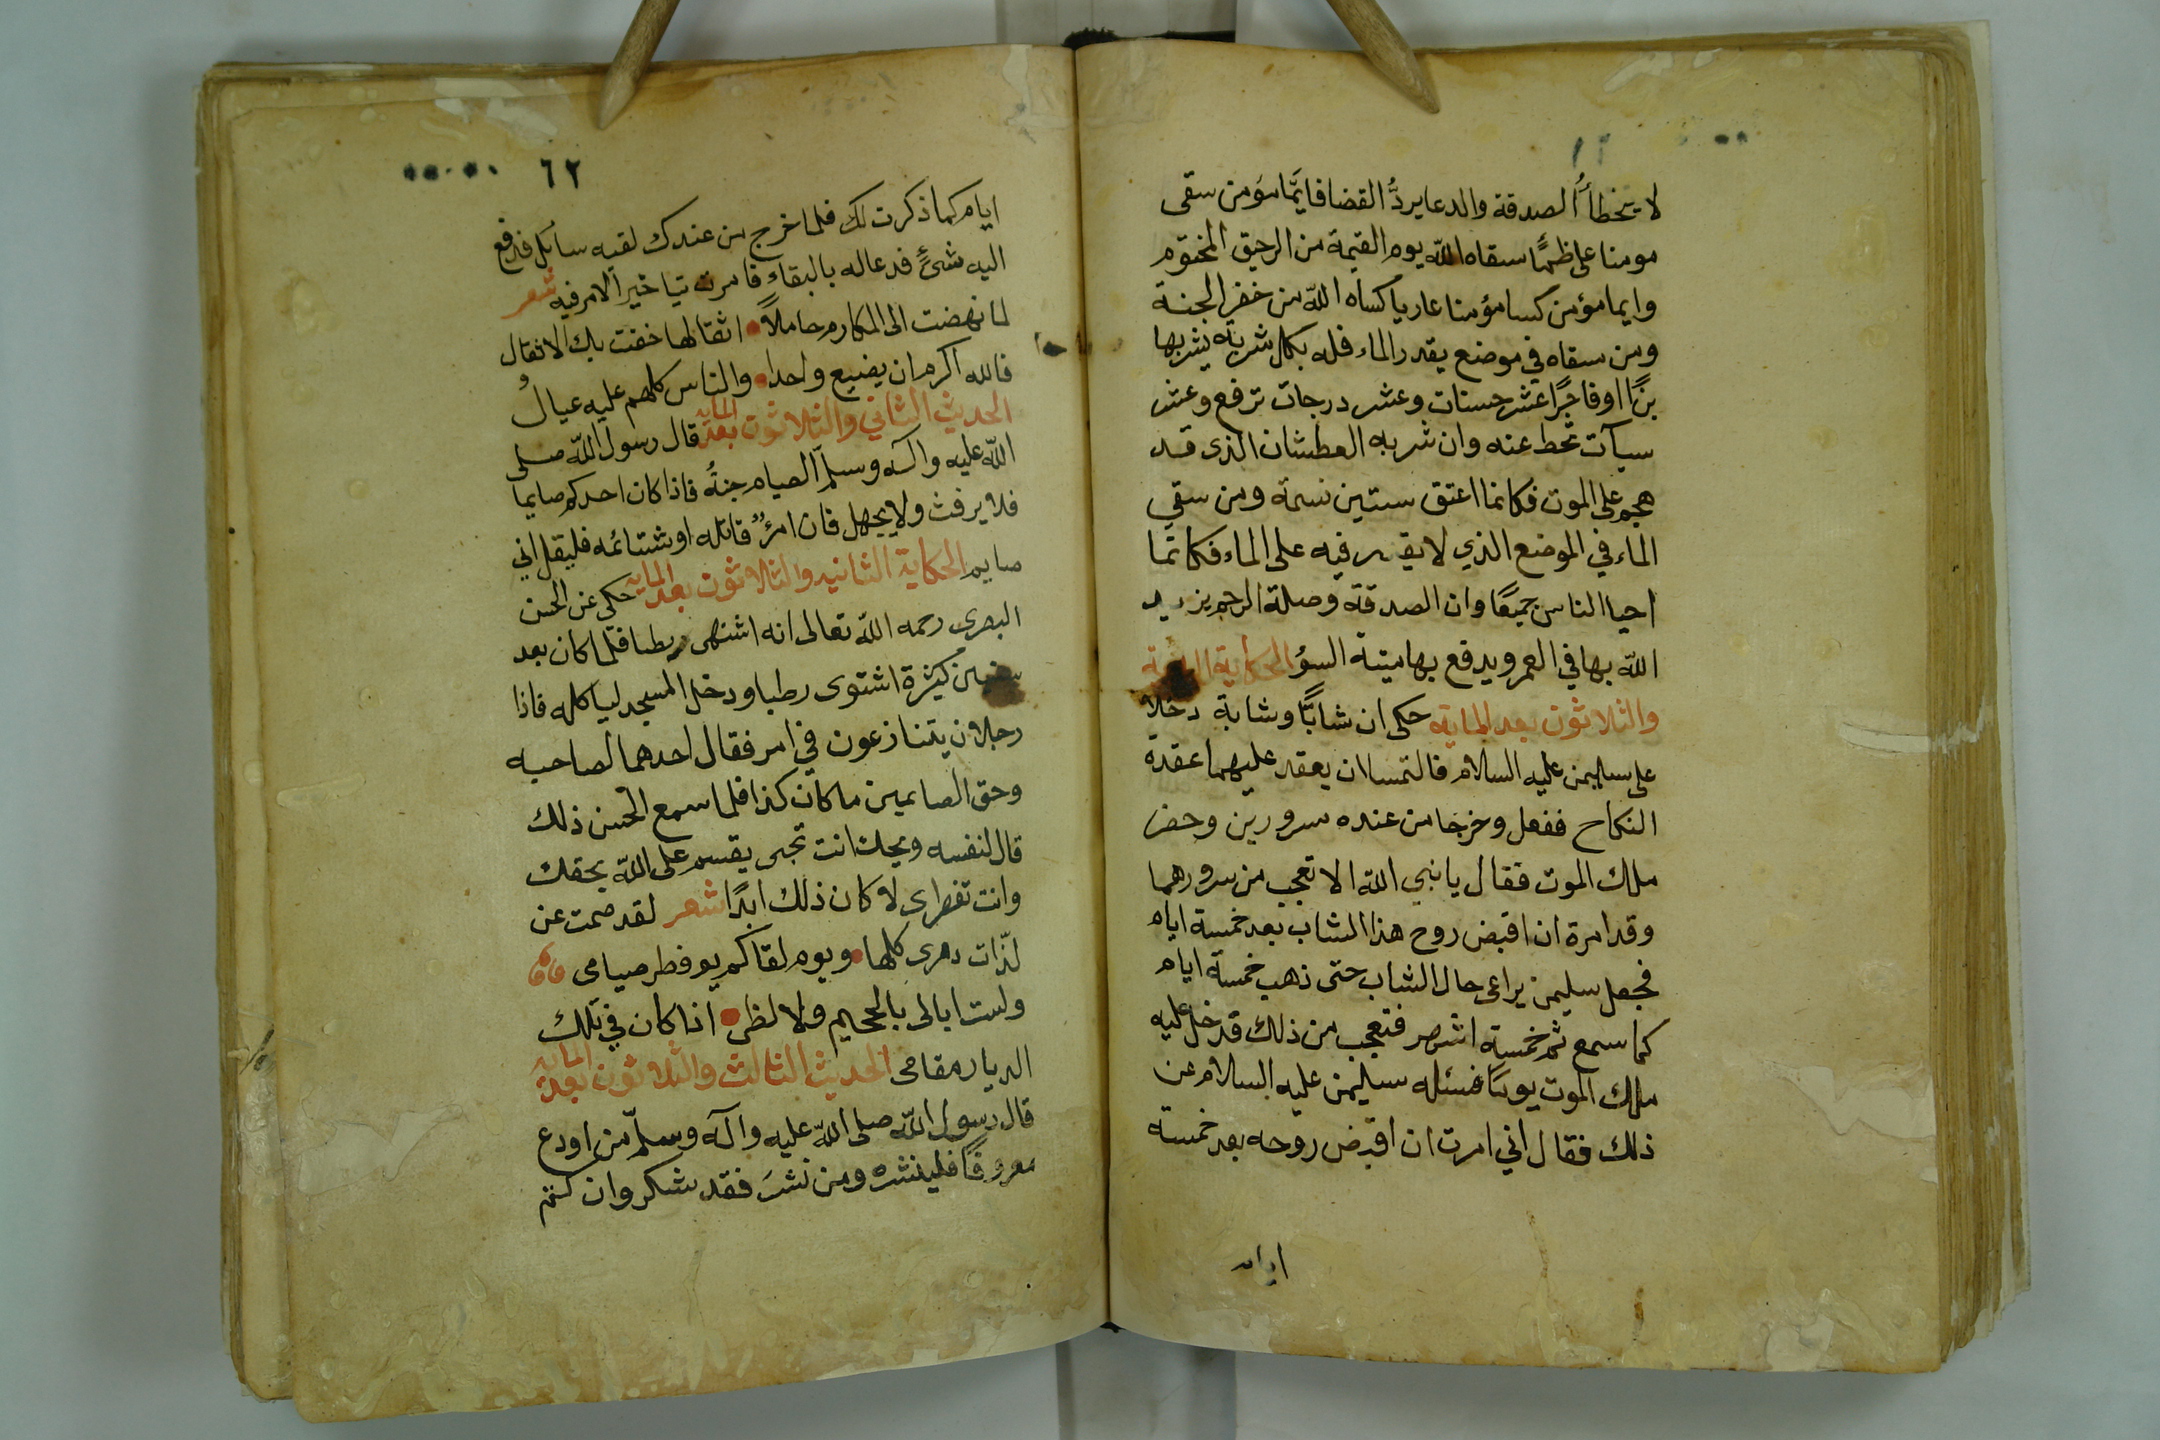 لا يتخطأ الصدقة والدعا يردُّ القضا فايَّما مؤمن سقى
مومنا على ظمأً سقاه اللّه يوم القيمة من الرحيق المختوم
وايما مؤمن كسا مؤمنا عاريا كساه اللّه من خضر الجنة
ومن سقاه في موضع يقدر الماء فله بكل شربة يشربها
برًّا اوفاجرًا عشر حسنات وعشر درجات ترفع وعشر
سيآت تحط عنه وان شربه العطشان الذى قد
هجم على الموت فكانما اعتق ستين نسمة ومن سقي
الماء في الموضع الذي لا يقدر فيه على الماء فكانما
احيا الناس جميعًا وان الصدقة وصلة الرحم يزيد
اللّه بها في العمر ويدفع بها ميتة السؤ الحكاية
والثلاثون بعد الماية حكى ان شابًّا وشابة دخلا
على سليمن عليه السلام فالتمسا ان يعقد عليهما عقدة
النكاح ففعل وخرجا من عنده سرورين وحضر
ملك الموت فقال يا نبي اللّه الا تعجب من سرورهما
وقد امرة ان اقبض روح هذا الشاب بعد خمسة ايام
فجعل سليمن يراعى حال الشاب حتى ذهب خمسة ايام
كما سمع ثم خمسة اشهر فتعجب من ذلك فدخل عليه
ملك الموت يومًا فسئله سليمن عليه السلام عن
ذلك فقال اني امرت ان اقبض روحه بعد خمسة
ايام
٦٢
ايام كما ذكرت لك فلما خرج من عندك لقيه سائل فدفع
اليه شئً فدعا له بالبقاء فامرت بتاخير الامر فيه شعر
لما نهضت الى المكارم حاملاً اثقالها خفت بك الاثقال
فالله اكرم ان يضيع واحدا والناس كلهم عليه عيالُ
الحديث الثاني والثلاثون بعد الماية قال رسول اللّه صلى
اللّه عليه وآله وسلّم الصيام جنةُ فاذا كان احدكم صايما
فلا يرفث ولا يجهل فان امرؤٌ قاتله او شتائمه فليقل اني
صايم الحكاية الثانيه والثلاثون بعد الماية حكى عن الحسن
البصرى رحمه اللّه تعالى انه اشتهى رطبا فلما كان بعد
سنين كثيرة اشتوى رطبا ودخل المسجد لياكله فاذا
رجلان يتنازعون في امر فقال احدهما لصاحبه
وحق الصايمين ما كان كذا فلما سمع الحسن ذلك
قال لنفسه ويحك انت تجى يقسم على اللّه بحقك
وانت تفطرى لا كان ذلك ابدًا شعر لقد صمت عن
لذّات دهرى كلها ويوم لقاكم يو فطر صيامى
ولست ابالى بالجحيم ولا لظى اذا كان في تلك
الديار مقامى الحديث الثالث والثلاثون بعد الماية
قال رسول اللّه صلى اللّه عليه وآله وسلّم من اودع
معروفًا فلينشره ومن نشرَ فقد شكر وان كتم